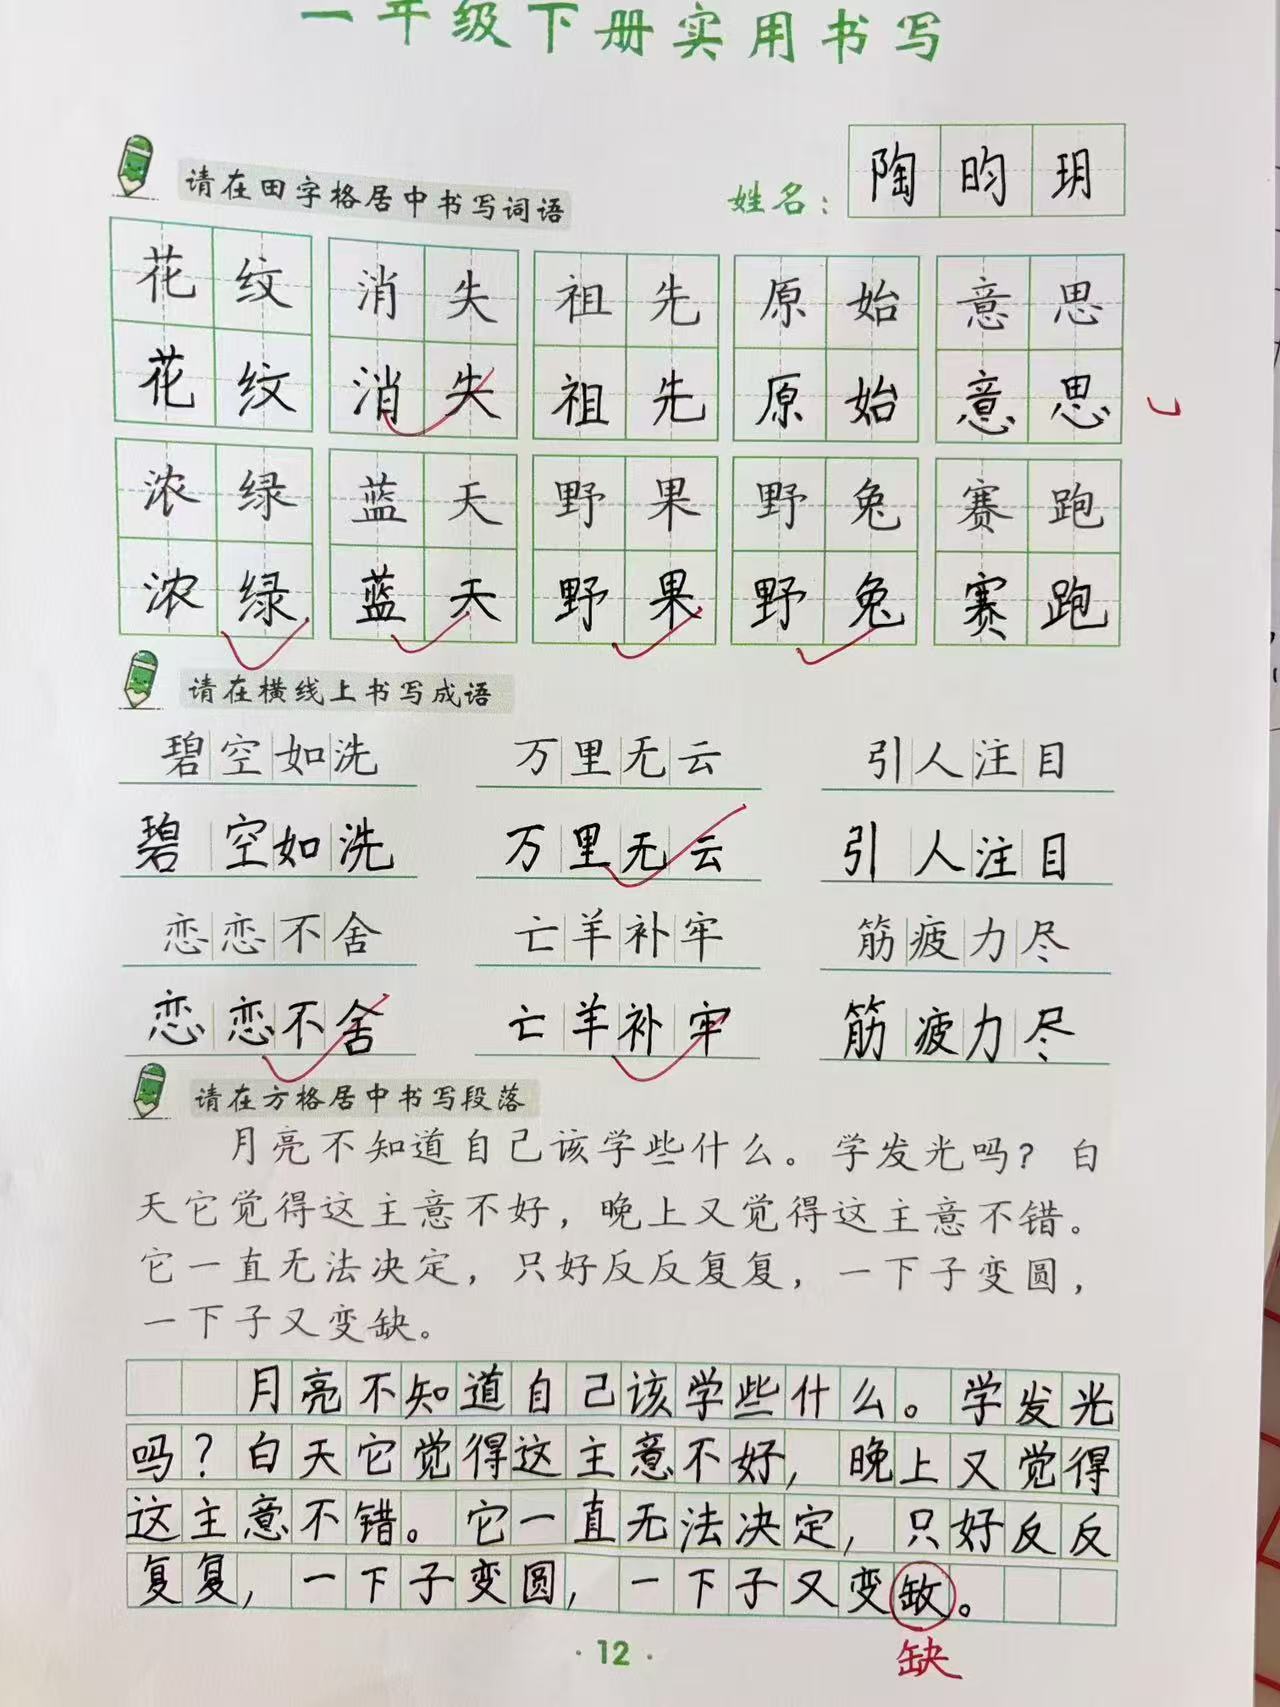 一年级下册实用书写
请在田字格居中书写词语
姓名：陶昀玥
花纹 消失 祖先 原始 意思
花纹 消失 祖先 原始 意思
浓绿 蓝天 野果 野兔 赛跑
浓绿 蓝天 野果 野兔 赛跑
请在横线上书写成语
碧空如洗 万里无云 引人注目
碧空如洗 万里无云 引人注目
恋恋不舍 亡羊补牢 筋疲力尽
恋恋不舍 亡羊补牢 筋疲力尽
请在方格居中书写段落
月亮不知道自己该学些什么。学发光吗？白
天它觉得这主意不好，晚上又觉得这主意不错。
它一直无法决定，只好反反复复，一下子变圆，
一下子又变缺。
月亮不知道自己该学些什么。学发光
吗？白天它觉得这主意不好，晚上又觉得
这主意不错。它一直无法决定，只好反反
复复，一下子变圆，一下子又变。
缺
·12·